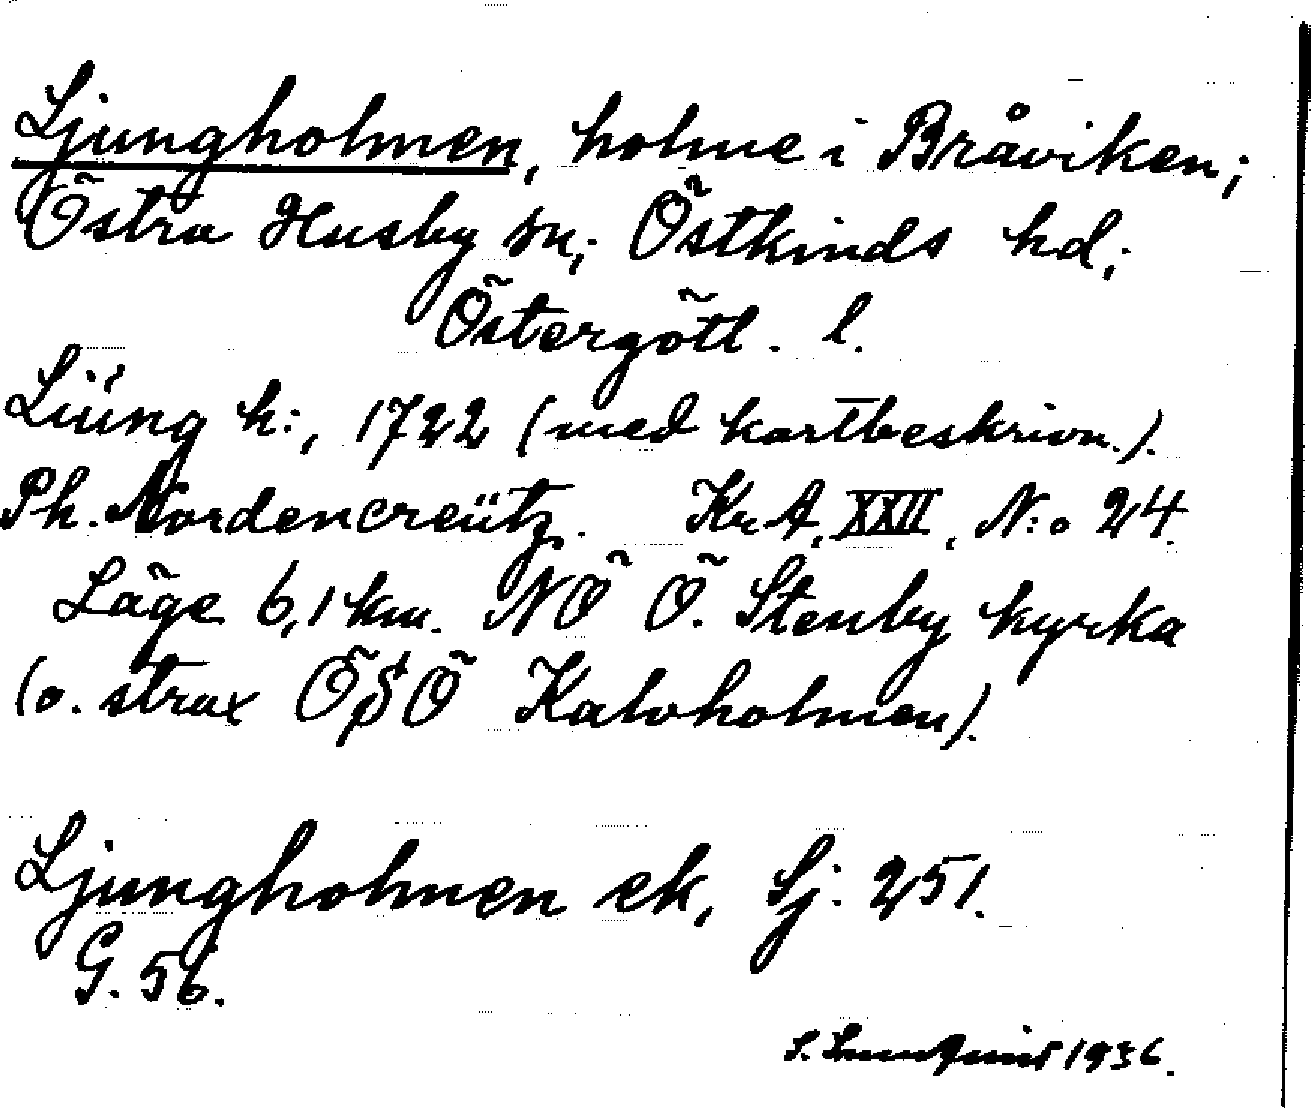 Ljungholmen, holme i Bråviken;
Östra Husby sn; Östkinds hd;
Östergötl. l.
Liüng h:, 1722 (med kartbeskrivn.).
Ph. Nordencreütz. Kr A, XXII, N:o 24.
Läge 6,1 km. NÖ Ö. Stenby kyrka
(o. strax ÖSÖ Kalvholmen).
Ljungholmen ek, Sj. 251.
G. 56.
S. 1936.